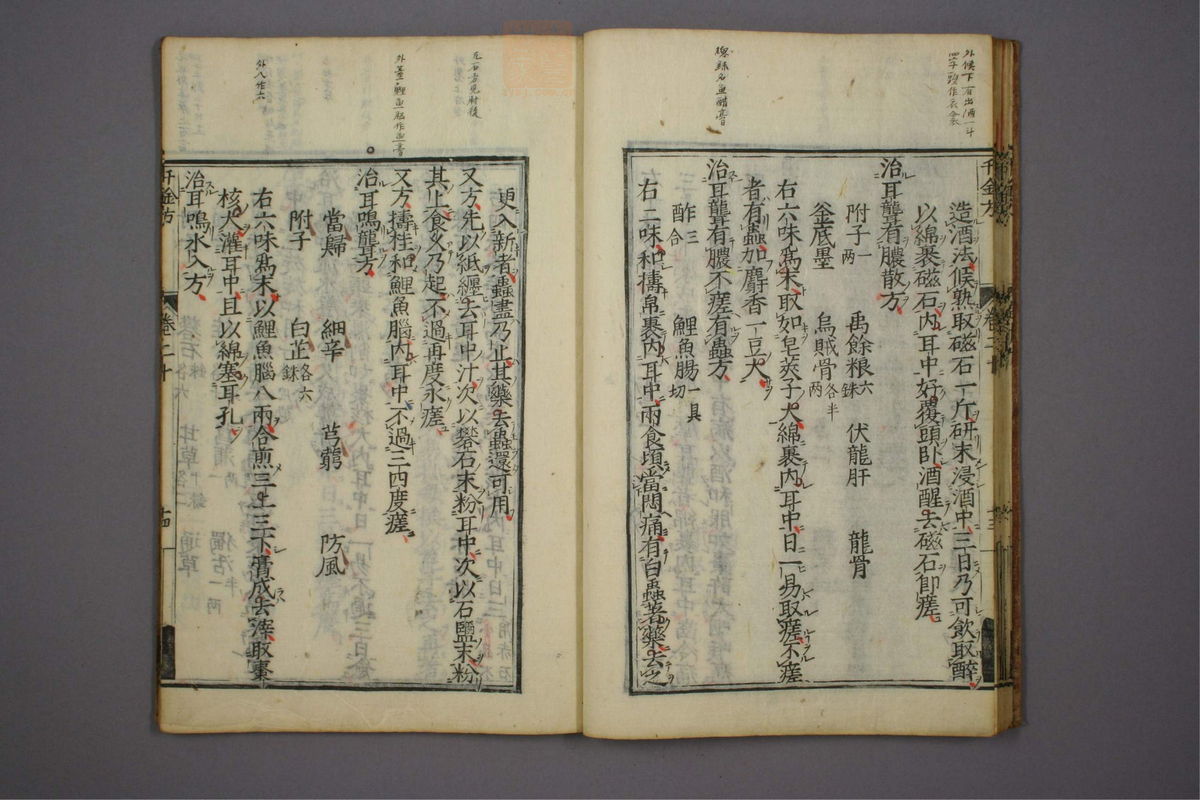 外候下有出酒一斗
千金方 卷二十 十三
造酒法候熟取磁石一斤研末浸酒中三日乃可飲取醉
以綿裹磁石内耳中好覆頭卧酒醒去磁石即瘥
治耳聾有膿散方
附子一兩 禹餘粮六銖 伏龍肝 龍骨
釜底墨 烏賊骨各半兩
右六味爲末取如皂莢子大綿裹内耳中日一易取瘥不瘥
者有蟲加麝香一豆大
治耳聾有膿不瘥有蟲方
酢三合 鯉魚腸一具切
右二味和擣帛裹内耳中兩食頃當悶痛有白蟲著藥去之
更入新者蟲盡乃止其藥去蟲還可用
又方先以紙纏去耳中汁次以礬石末粉耳中次以石鹽末粉
其上食久乃起不過再度永瘥
又方擣桂和鯉魚腦内耳中不過三四度瘥
治耳鳴聾方
當歸 細辛 芎藭 防風
附子 白芷各六銖
右六味爲末以鯉魚腦八兩合煎三上三下膏成去滓取棗
核大灌耳中且以綿塞耳孔
治耳鳴水入方
千金方 卷二十 十四
外八作六